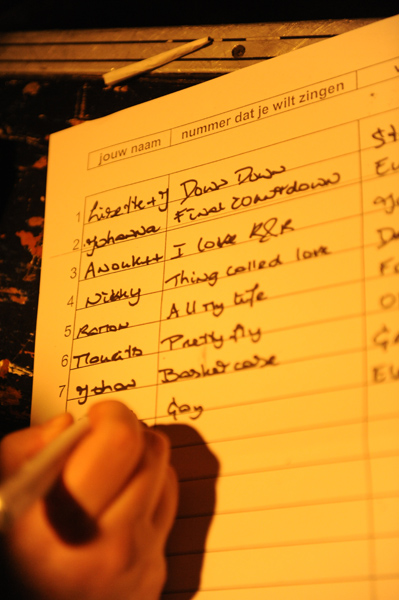 jouw naam nummer dat je wilt zingen
1 Down Down
2 Johanna Final Countdown
3 Anouk I love R&R
4 Nikky Thing called love
5 Ramon All my life
6 Maurits Pretty fly
7 Johan Basket case
Gay